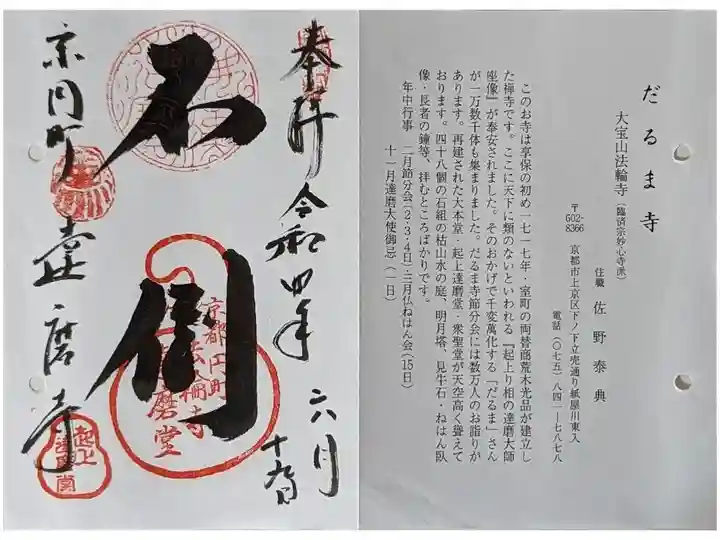 奉拝 令和四年 六月 十九日
不倒
京円町 達磨寺
京都円町
法輪寺
達磨堂
起上
だるま寺
大宝山法輪寺(臨済宗妙心寺派)
住職 佐野泰典
〒602-8366 京都市上京区下ノ下立売通り紙屋川東入
電話(〇七五)八四一―七八七八
このお寺は享保の初め一七一七年・室町の両替商荒木光品が建立し
た禅寺です。ここに天下に類のないといわれる『起上り相の達磨大師
座像』が奉安されました。そのおかげで千変萬化する「だるま」さん
が一万数千体も集まりました。だるま寺節分会には数万人のお詣りが
あります。再建された大本堂・起上達磨堂・衆聖堂が天空高く聳えて
おります。四十八個の石組の枯山水の庭、明月塔、見牛石・ねはん臥
像・長者の鐘等、拝むところばかりです。
年中行事 二月節分会(2・3・4日)三月仏ねはん会(15日)
十一月達磨大使御忌(一日)